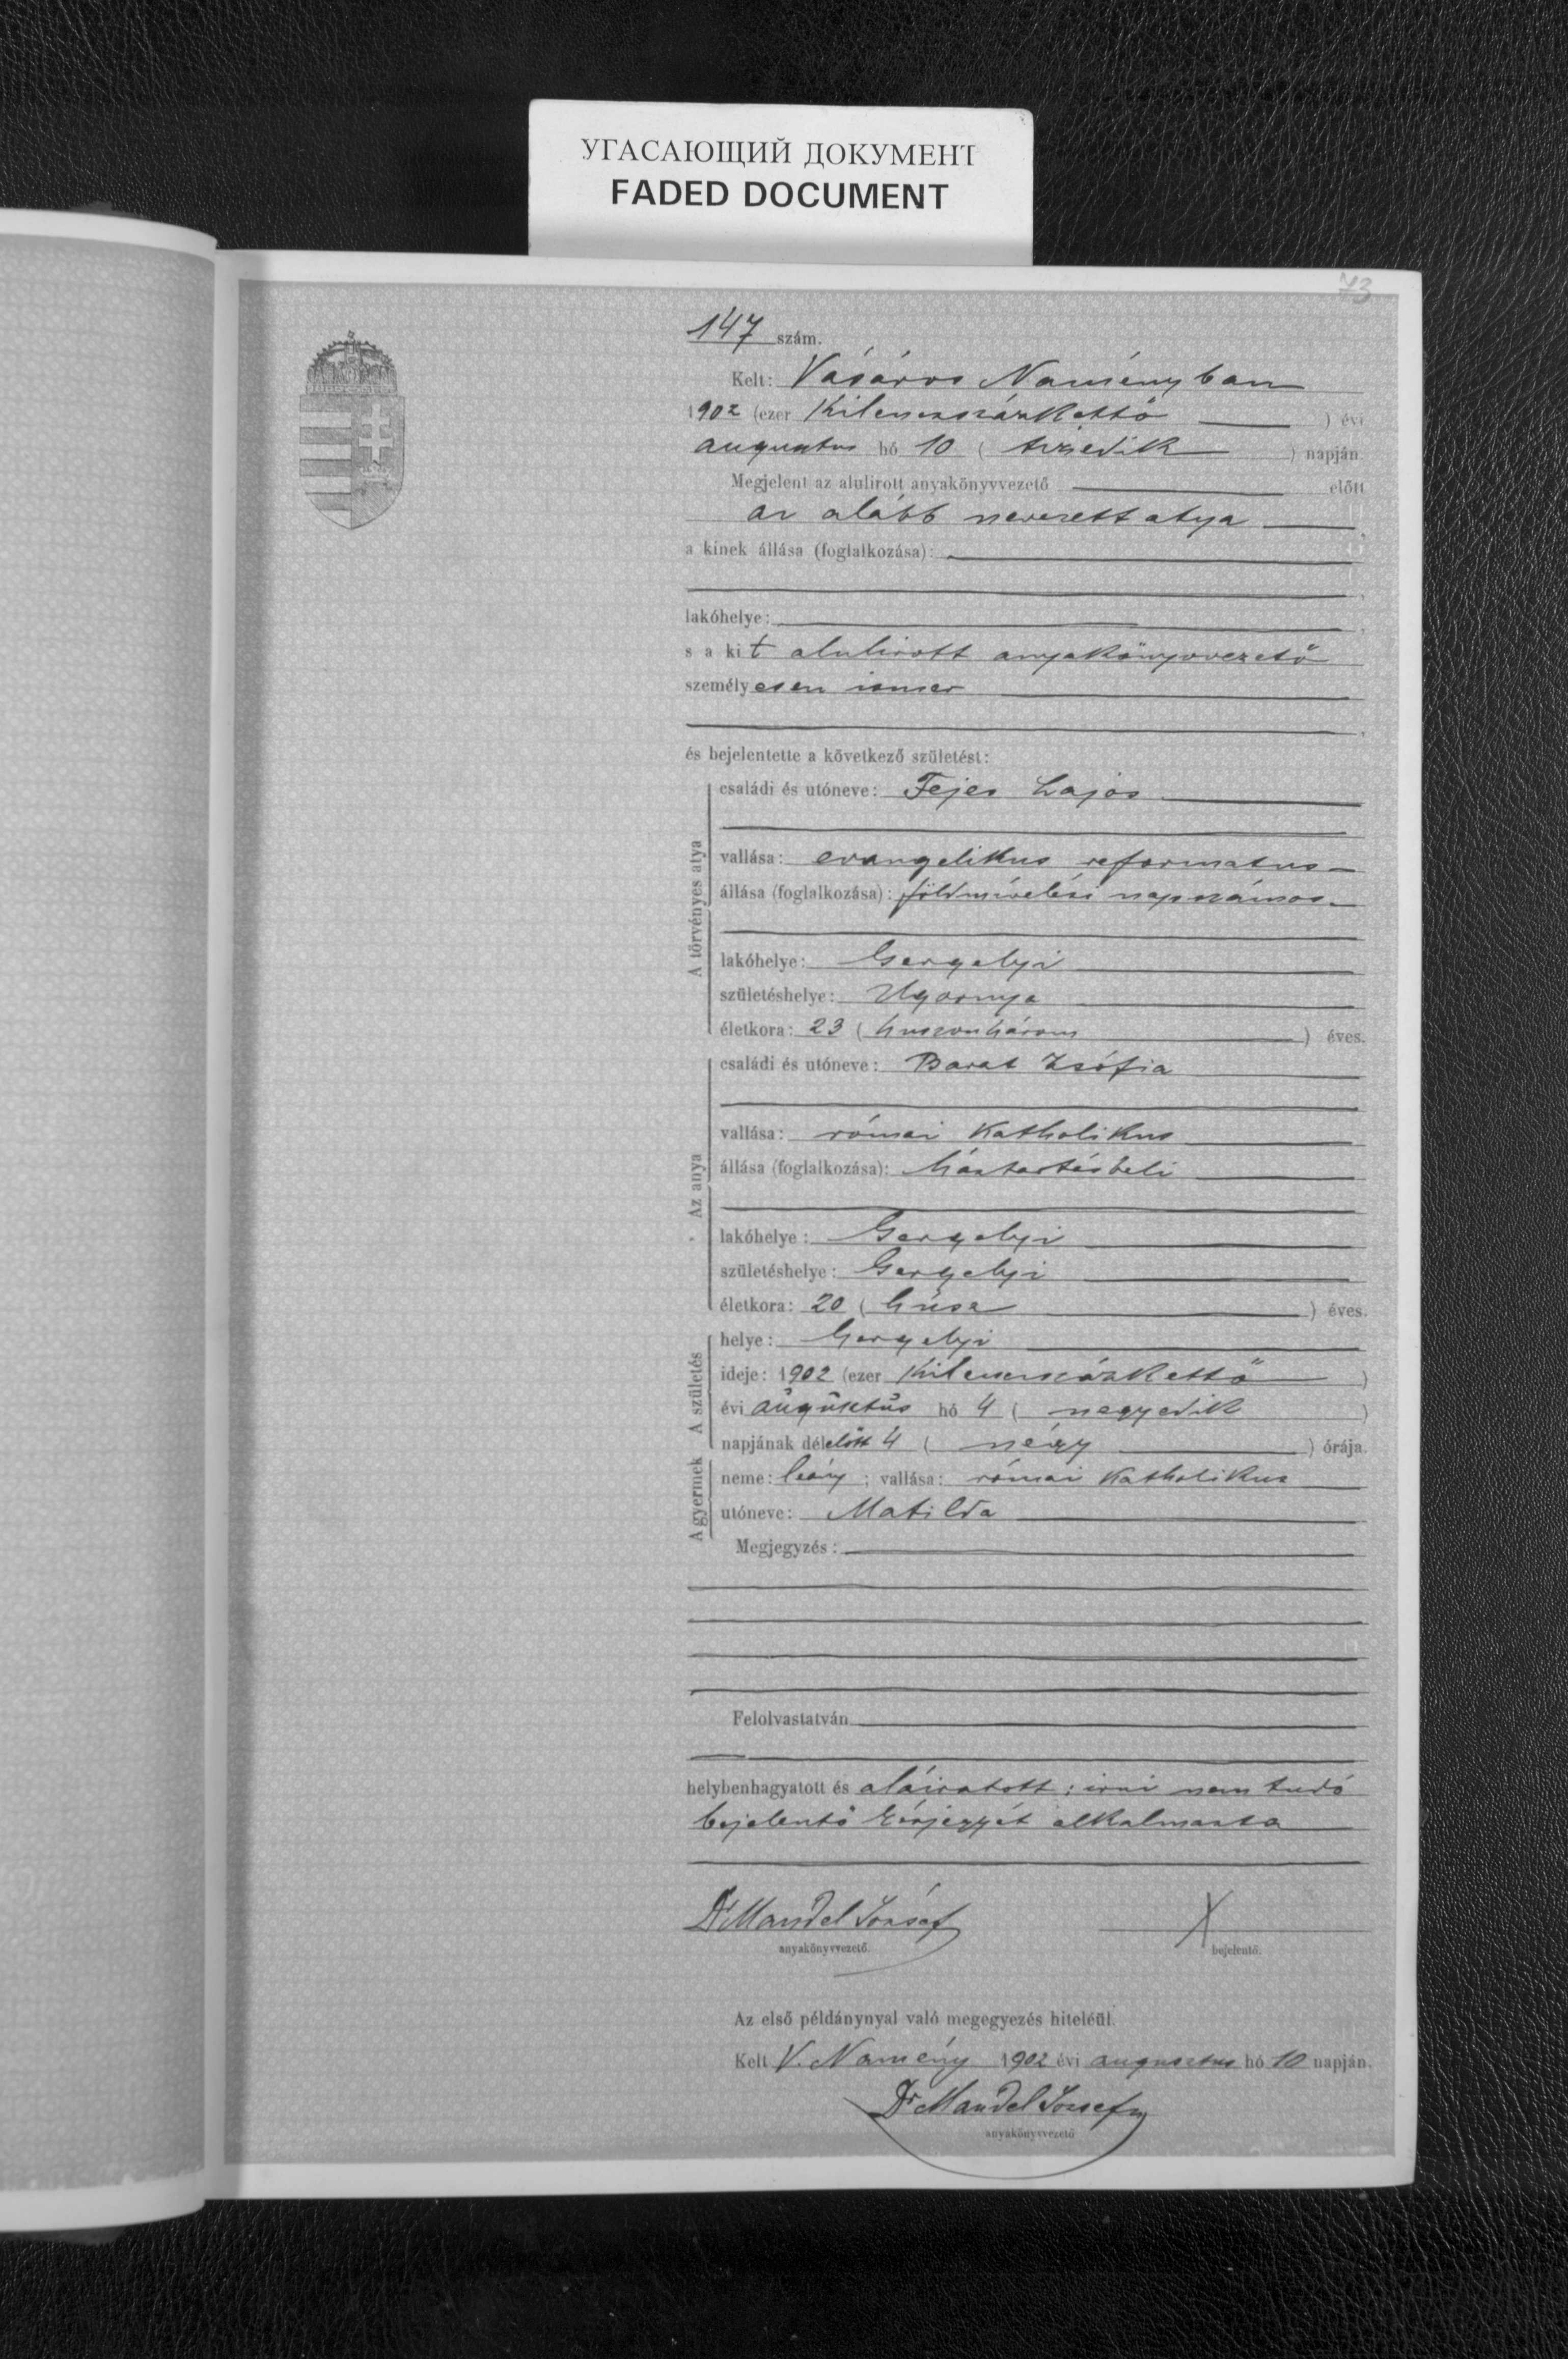 УГАСАЮЩИЙ ДОКУМЕНТ
FADED DOCUMENT
73
147 szám.
Kelt: Vásáros Naményban
1902 (ezer kilenczszázkettő) évi
augusztus hó 10 (tizedik) napján.
Megjelent az alulirott anyakönyvvezető előtt
az alább nevezett atya
a kinek állása (foglalkozása):
lakóhelye:
s a kit alulirott anyakönyvvezető
személyesen ismer
és bejelentette a következő születést:
A törvényes atya
családi és utóneve: Fejes Lajos
vallása: evangelikus reformatus
állása (foglalkozása): földmívelési napszámos
lakóhelye: Gergelyi
születéshelye: Ugornya
életkora: 23 (huszonhárom) éves.
Az anya
családi és utóneve: Barat Zsófia
vallása: római katholikus
állása (foglalkozása): háztartásbeli
lakóhelye: Gergelyi
születéshelye: Gergelyi
életkora: 20 (húsz) éves.
A születés
helye: Gergelyi
ideje: 1902 (ezer kilenczszázkettő)
évi augusztus hó 4 (negyedik)
napjának délelőtt 4 (négy) órája.
A gyermek
neme: leány; vallása: római katholikus
utóneve: Matilda
Megjegyzés:
Felolvastatván
helybenhagyatott és aláiratott; irni nem tudó
bejelentő kézjegyét alkalmazta
Dr Mandel József
X
anyakönyvvezető.
bejelentő.
Az első példánynyal való megegyezés hiteléül.
Kelt V. Namény 1902 évi augusztus hó 10 napján.
Dr Mandel József
anyakönyvvezető